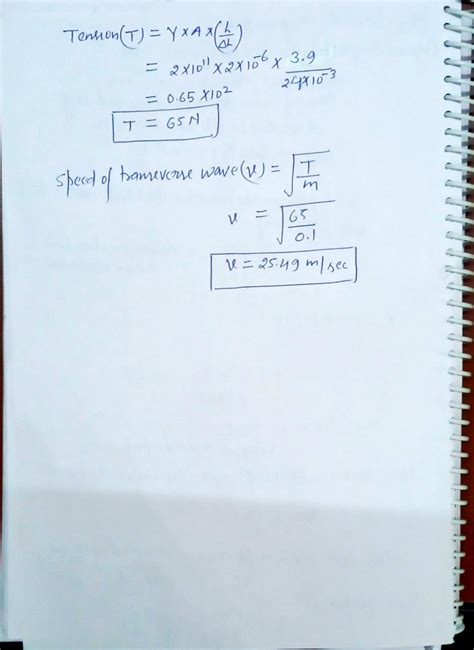 Tension(T) = Y x A x (L/ΔL)
= 2x10¹¹ x 2x10⁻⁶ x 3.9/24x10⁻³
= 0.65 x10²
T = 65N
Speed of transverse wave(v) = √T/m
v = √65/0.1
v = 25.49 m/sec